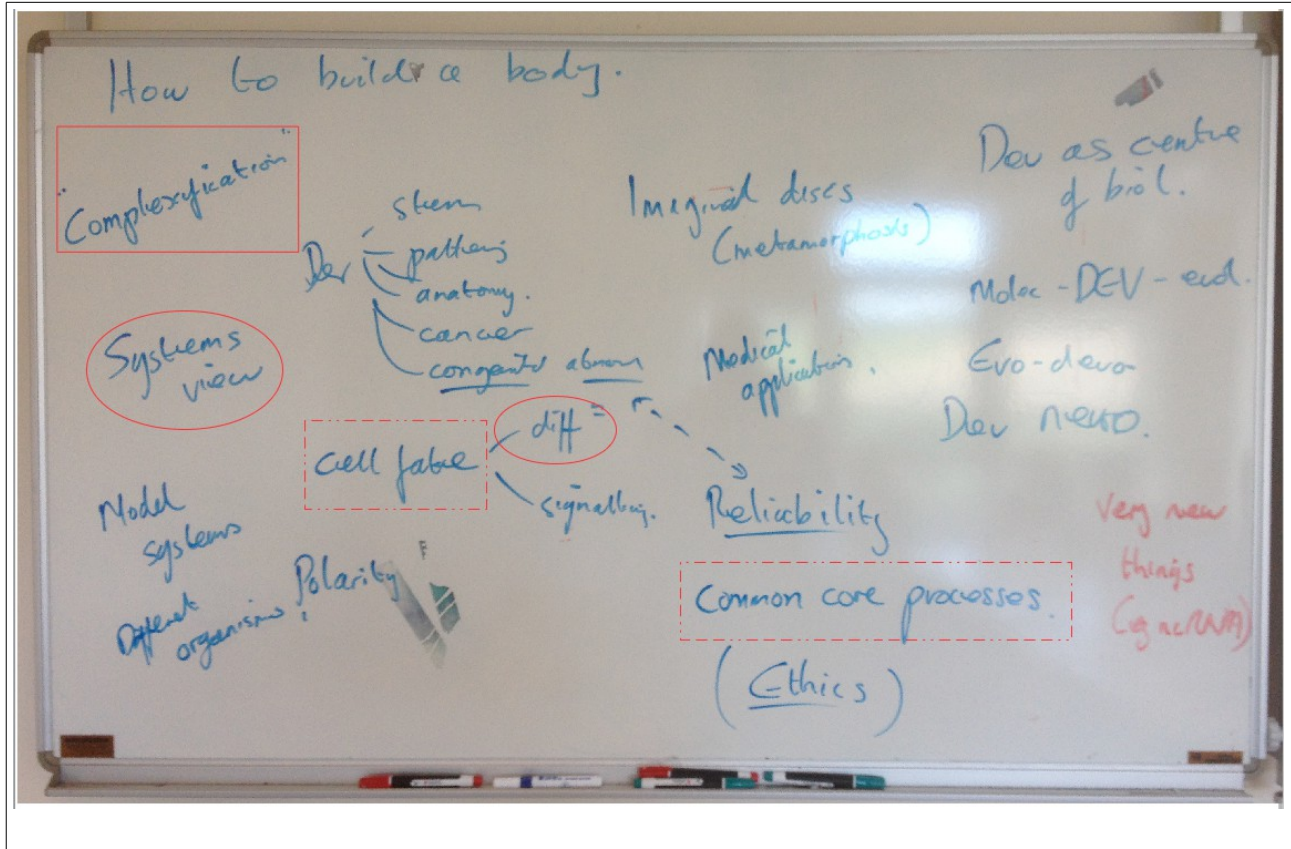 How to build a body.
"Complexification"
Dev
stem
pathways
anatomy.
cancer
congenital abnorm
Imaginal discs
(metamorphosis)
Dev as centre
of biol.
Molec - DEV - evol.
Evo-devo
Dev neuro.
Systems
view
Medical
applications.
cell fate
diff
signalling.
Reliability
Model
systems
Different
organisms!
Polarity
Common core processes.
(Ethics)
Very new
things
(eg ncRNA)